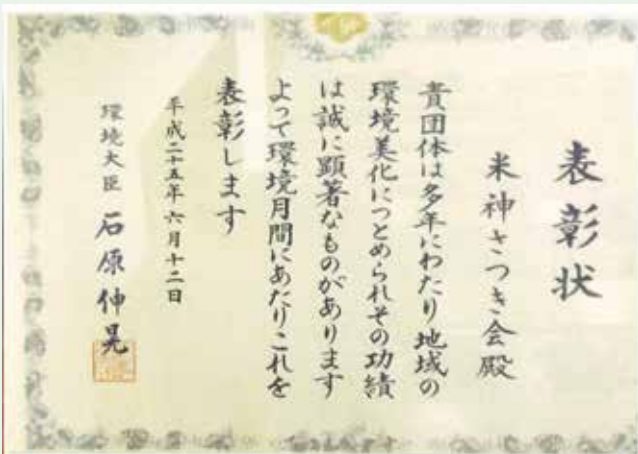 表彰状
米神さつき会殿
貴団体は多年にわたり地域の
環境美化につとめられその功績
は誠に顕著なものがあります
よって環境月間にあたりこれを
表彰します
平成二十五年六月十二日
環境大臣 石原伸晃